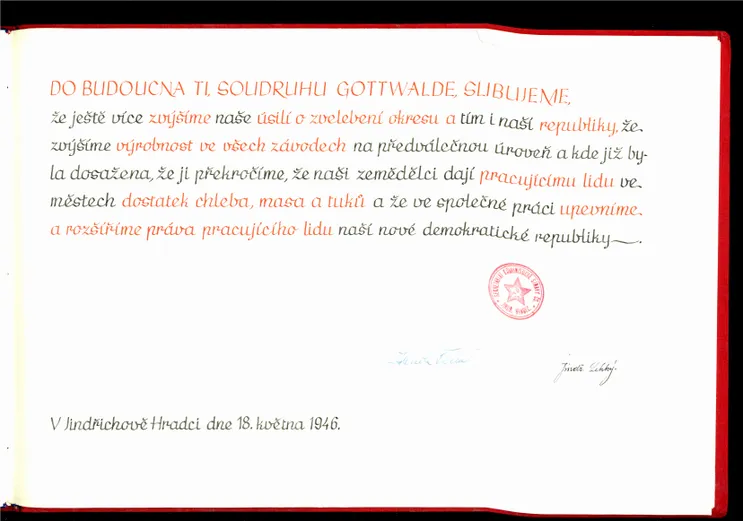 DO BUDOUCNA TI, SOUDRUHU GOTTWALDE, SLIBUJEME,
že ještě více zvýšíme naše úsilí o zvelebení okresu a tím i naší republiky, že
zvýšíme výrobnost ve všech závodech na předválečnou úroveň a kde již by-
la dosažena, že ji překročíme, že naši zemědělci dají pracujícímu lidu ve
městech dostatek chleba, masa a tuků a že ve společné práci upevníme
a rozšíříme práva pracujícího lidu naší nové demokratické republiky.
V Jindřichově Hradci dne 18. května 1946.